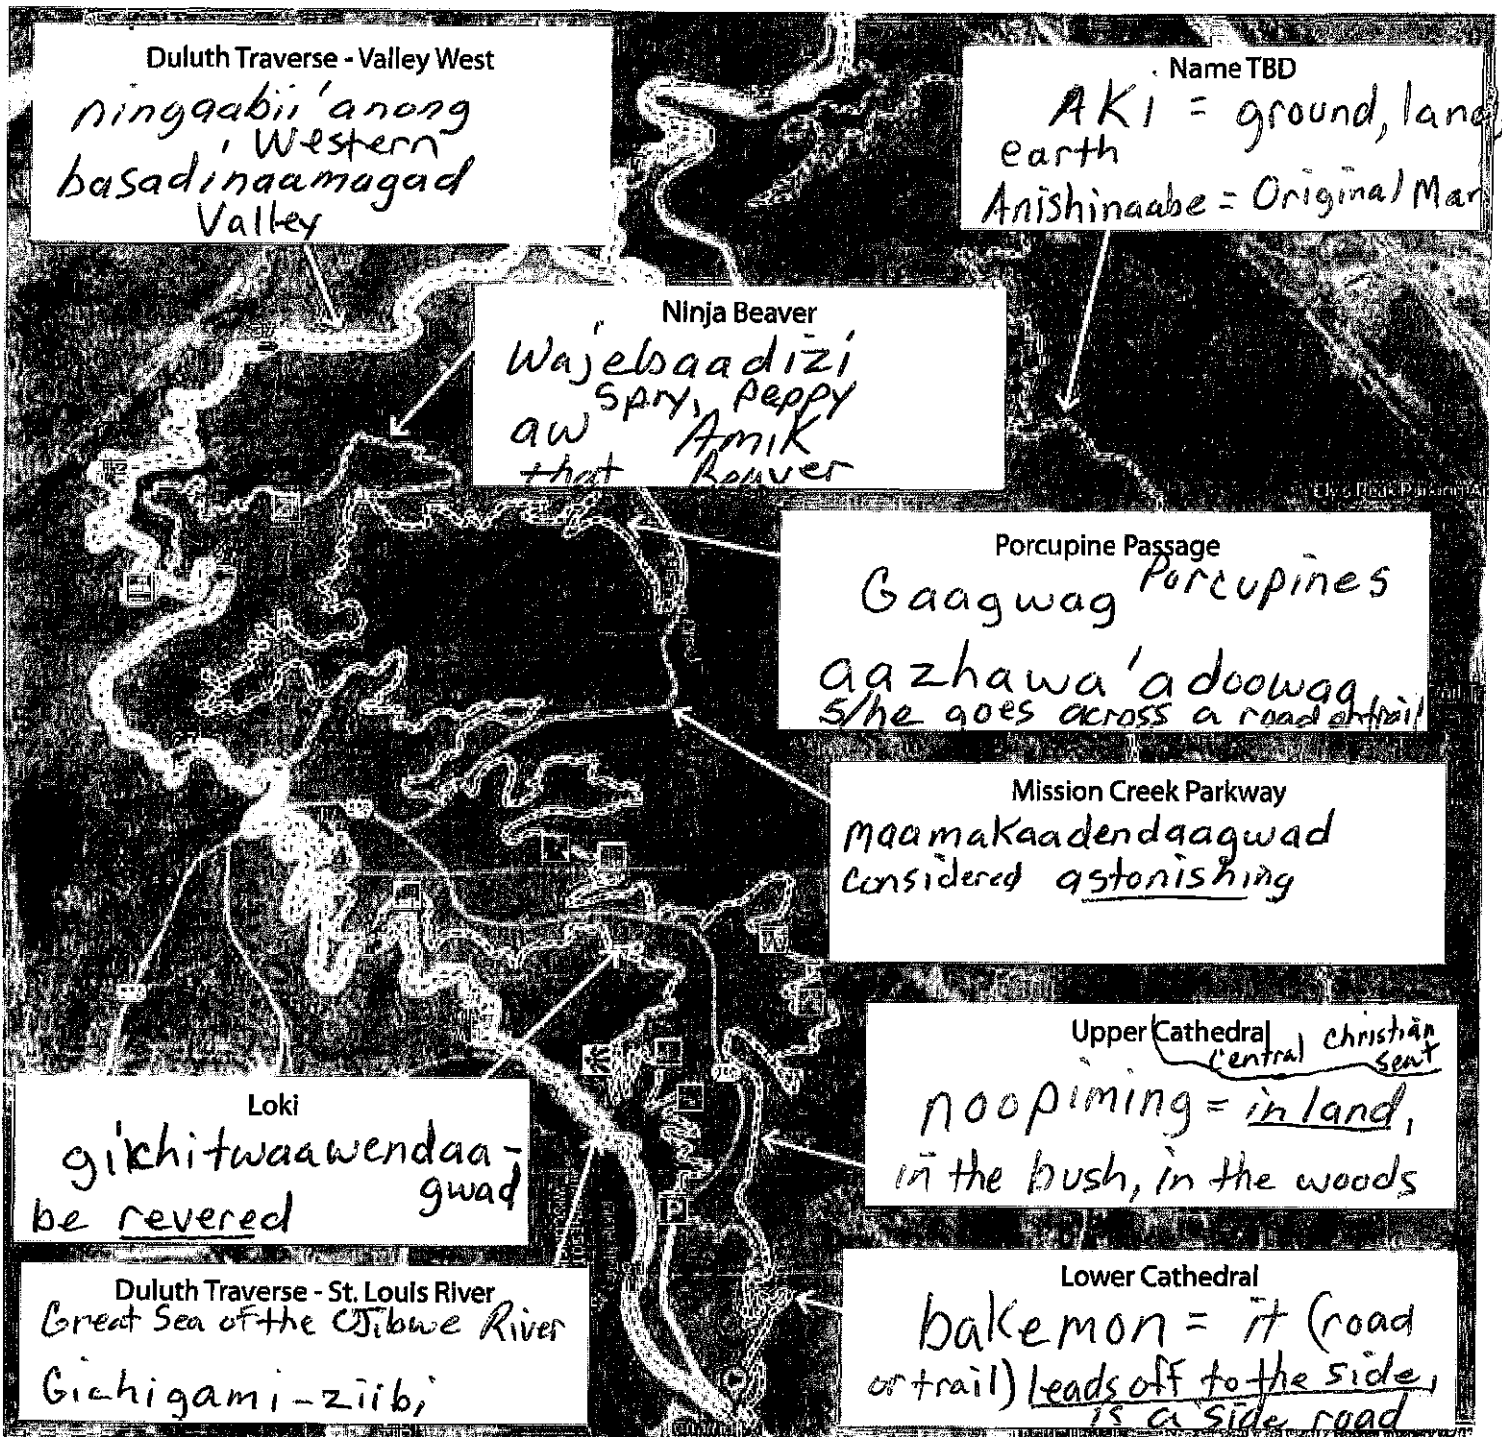 Duluth Traverse - Valley West
ningaabii'anong
Western
basadinaamagad
Valley
Name TBD
AKI = ground, land,
earth
Anishinaabe = Original Man
Ninja Beaver
Wajebaadizi
Spry, Peppy
aw Amik
that Beaver
Porcupine Passage
Gaagwag Porcupines
aazhawa'adoowag
s/he goes across a road or trail
Mission Creek Parkway
maamakaadendaagwad
considered astonishing
Upper Cathedral
central Christian
seat
noopiming = in land,
in the bush, in the woods
Loki
gikchitwaawendaa-
gwad
be revered
Duluth Traverse - St. Louis River
Great Sea of the Ojibwe River
Gichigami-ziibi
Lower Cathedral
bakemon = it (road
or trail) leads off to the side,
is a side road